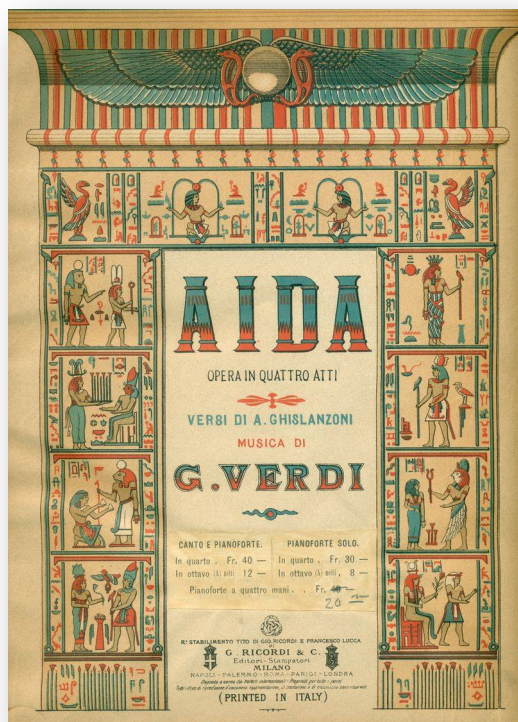 AIDA
OPERA IN QUATTRO ATTI
VERSI DI A. GHISLANZONI
MUSICA DI
G. VERDI
CANTO E PIANOFORTE.
In quarto . Fr. 40 —
In ottavo (A) netti 12 —
PIANOFORTE SOLO.
In quarto . Fr. 30 —
In ottavo (A) netti . 8 —
Pianoforte a quattro mani . . Fr. 40 —
20 —
R.º STABILIMENTO TITO DI GIO. RICORDI E FRANCESCO LUCCA
di
G. RICORDI & C.
Editori-Stampatori
MILANO
NAPOLI - PALERMO - ROMA - PARIGI - LONDRA
(PRINTED IN ITALY)